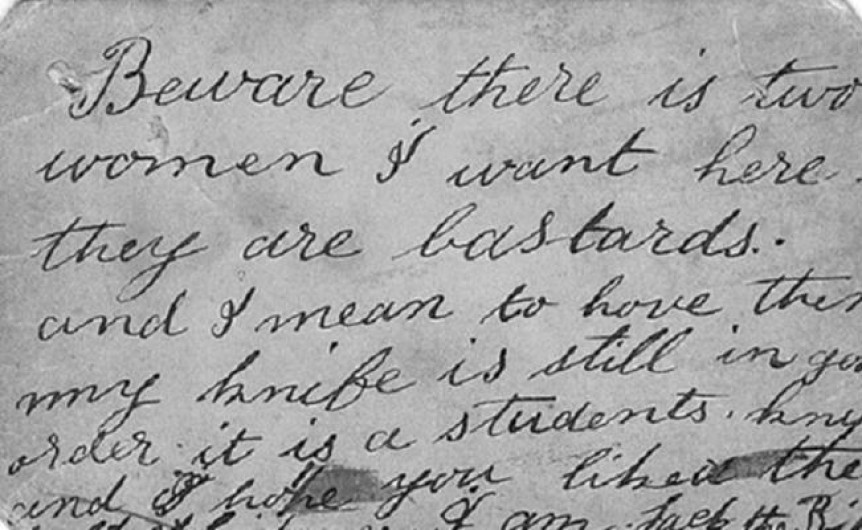 Beware there is two
women I want here
they are bastards.
and I mean to have them
my knife is still in go
order it is a students. kny
and I hope you liked the
I am Jack t R